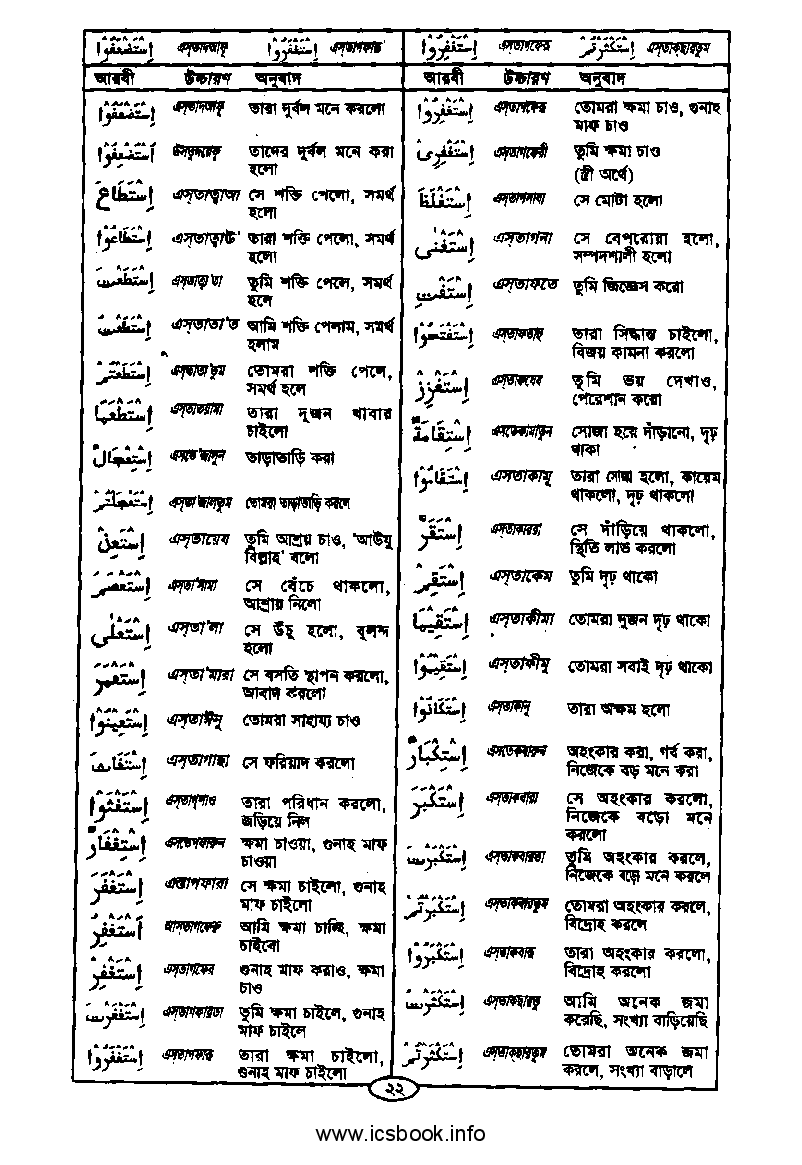 اِسْتَضْعَفُوْا এস্তাদআফু اِسْتَغْفَرُوْا এস্তাগফারু
আরবী উচ্চারণ অনুবাদ
اِسْتَضْعَفُوْا এস্তাদআফু তারা দুর্বল মনে করলো
اُسْتُضْعِفُوْا তাদের দুর্বল মনে করা
হলো
اِسْتَطَاعَ এস্তাত্বাআ সে শক্তি পেলো, সমর্থ
হলো
اِسْتَطَاعُوْا এস্তাত্বাউ' তারা শক্তি পেলো, সমর্থ
হলো
اِسْتَطَعْتَ এস্তাত্বা'তা তুমি শক্তি পেলে, সমর্থ
হলে
اِسْتَطَعْتُ এস্তাতা'ত আমি শক্তি পেলাম, সমর্থ
হলাম
اِسْتَطَعْتُمْ এস্তাতা'তুম তোমরা শক্তি পেলে,
সমর্থ হলে
اِسْتَطْعَمَا এস্তাতয়ামা তারা দুজন খাবার
চাইলো
اِسْتِعْجَالٌ এসতে'জালুন তাড়াতাড়ি করা
اِسْتَعْجَلْتُمْ এস্তা'জালতুম তোমরা তাড়াতাড়ি করলে
اِسْتَعِذْ এস্তায়েয তুমি আশ্রয় চাও, 'আউযু
বিল্লাহ' বলো
اِسْتَعْصَمَ এস্তা'সামা সে বেঁচে থাকলো,
আশ্রয় নিলো
اِسْتَعْلٰى এস্তা'লা সে উঁচু হলো, বুলন্দ
হলো
اِسْتَعْمَرَ এস্তা'মারা সে বসতি স্থাপন করলো,
আবাদ করলো
اِسْتَعِيْنُوْا এস্তাঈনু তোমরা সাহায্য চাও
اِسْتَغَاثَ এস্তাগাছা সে ফরিয়াদ করলো
اِسْتَغْشَوْا এস্তাগশাও তারা পরিধান করলো,
জড়িয়ে নিল
اِسْتِغْفَارٌ এসতেগফারুন ক্ষমা চাওয়া, গুনাহ মাফ
চাওয়া
اِسْتَغْفَرَ এস্তাগফারা সে ক্ষমা চাইলো, গুনাহ
মাফ চাইলো
اَسْتَغْفِرُ আসতাগফেরু আমি ক্ষমা চাচ্ছি, ক্ষমা
চাইবো
اِسْتَغْفِرْ এস্তাগফের গুনাহ মাফ করাও, ক্ষমা
চাও
اِسْتَغْفَرْتَ এস্তাগফারতা তুমি ক্ষমা চাইলে, গুনাহ
মাফ চাইলে
اِسْتَغْفَرُوْا এস্তাগফারু তারা ক্ষমা চাইলো,
গুনাহ মাফ চাইলো
اِسْتَغْفِرُوْا এস্তাগফেরু اِسْتَكْثَرْتُمْ এস্তাকছারতুম
আরবী উচ্চারণ অনুবাদ
اِسْتَغْفِرُوْا এস্তাগফেরু তোমরা ক্ষমা চাও, গুনাহ
মাফ চাও
اِسْتَغْفِرِىْ এস্তাগফেরী তুমি ক্ষমা চাও
(স্ত্রী অর্থে)
اِسْتَغْلَظَ এস্তাগলাযা সে মোটা হলো
اِسْتَغْنٰى এস্তাগনা সে বেপরোয়া হলো,
সম্পদশালী হলো
اِسْتَفْتِ এস্তাফতে তুমি জিজ্ঞেস করো
اِسْتَفْتَحُوْا এস্তাফতাহু তারা সিদ্ধান্ত চাইলো,
বিজয় কামনা করলো
اِسْتَفْزِزْ এস্তাফযেয তুমি ভয় দেখাও,
পেরেশান করো
اِسْتِقَامَةٌ এসতেকামাতুন সোজা হয়ে দাঁড়ানো, দৃঢ়
থাকা
اِسْتَقَامُوْا এস্তাকামু তারা সোজা হলো, কায়েম
থাকলো, দৃঢ় থাকলো
اِسْتَقَرَّ এস্তাকাররা সে দাঁড়িয়ে থাকলো,
স্থিতি লাভ করলো
اِسْتَقِمْ এস্তাকেম তুমি দৃঢ় থাকো
اِسْتَقِيْمَا এস্তাকীমা তোমরা দুজন দৃঢ় থাকো
اِسْتَقِيْمُوْا এস্তাকীমু তোমরা সবাই দৃঢ় থাকো
اِسْتَكَانُوْا এস্তাকানু তারা অক্ষম হলো
اِسْتِكْبَارٌ এসতেকবারুন অহংকার করা, গর্ব করা,
নিজেকে বড় মনে করা
اِسْتَكْبَرَ এস্তাকবারা সে অহংকার করলো,
নিজেকে বড়ো মনে
করলো
اِسْتَكْبَرْتَ এস্তাকবারতা তুমি অহংকার করলে,
নিজেকে বড়ো মনে করলে
اِسْتَكْبَرْتُمْ এস্তাকবারতুম তোমরা অহংকার করলে,
বিদ্রোহ করলে
اِسْتَكْبَرُوْا এস্তাকবারু তারা অহংকার করলো,
বিদ্রোহ করলো
اِسْتَكْثَرْتُ এস্তাকছারতু আমি অনেক জমা
করেছি, সংখ্যা বাড়িয়েছি
اِسْتَكْثَرْتُمْ এস্তাকছারতুম তোমরা অনেক জমা
করলে, সংখ্যা বাড়ালে
২২
www.icsbook.info